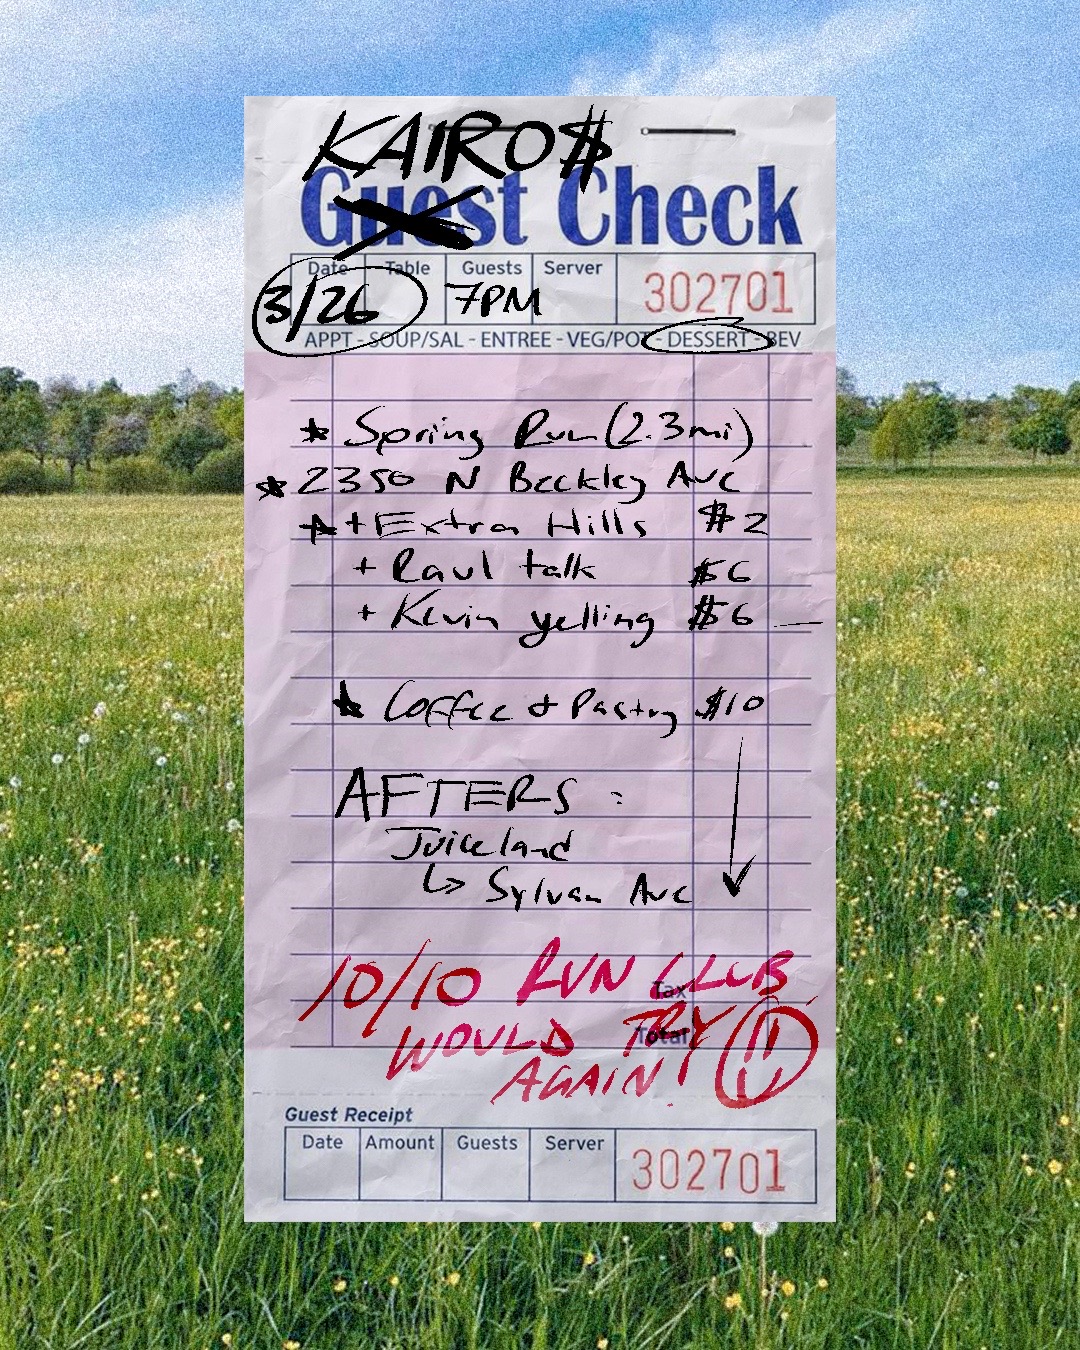 KAIRO$
Guest Check
Date Table Guests Server 302701
3/26 7PM
APPT - SOUP/SAL - ENTREE - VEG/POT - DESSERT - BEV
★ Spring Run (2.3mi)
★ 2350 N Beckley Ave
★ + Extra Hills $2
+ Raul talk $6
+ Kevin yelling $6
★ Coffee + Pastry $10
AFTERS :
Juiceland
↳ Sylvan Ave
10/10 RUN CLUB
Tax
WOULD TRY
Total
AGAIN!
Guest Receipt
Date Amount Guests Server 302701